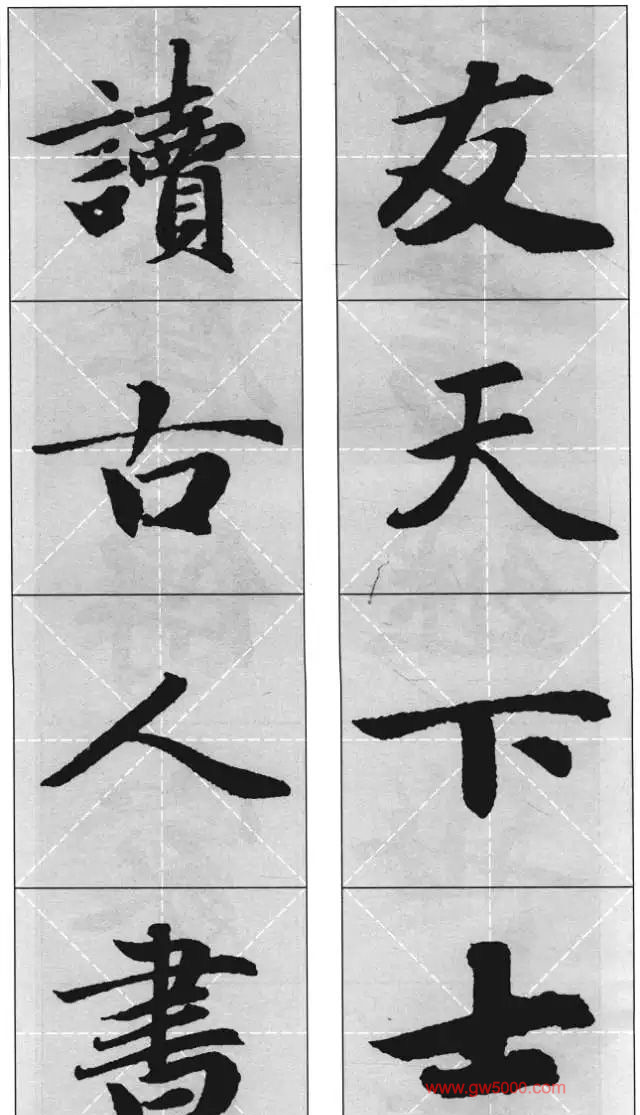 友天下士
讀古人書
www.gw5000.com